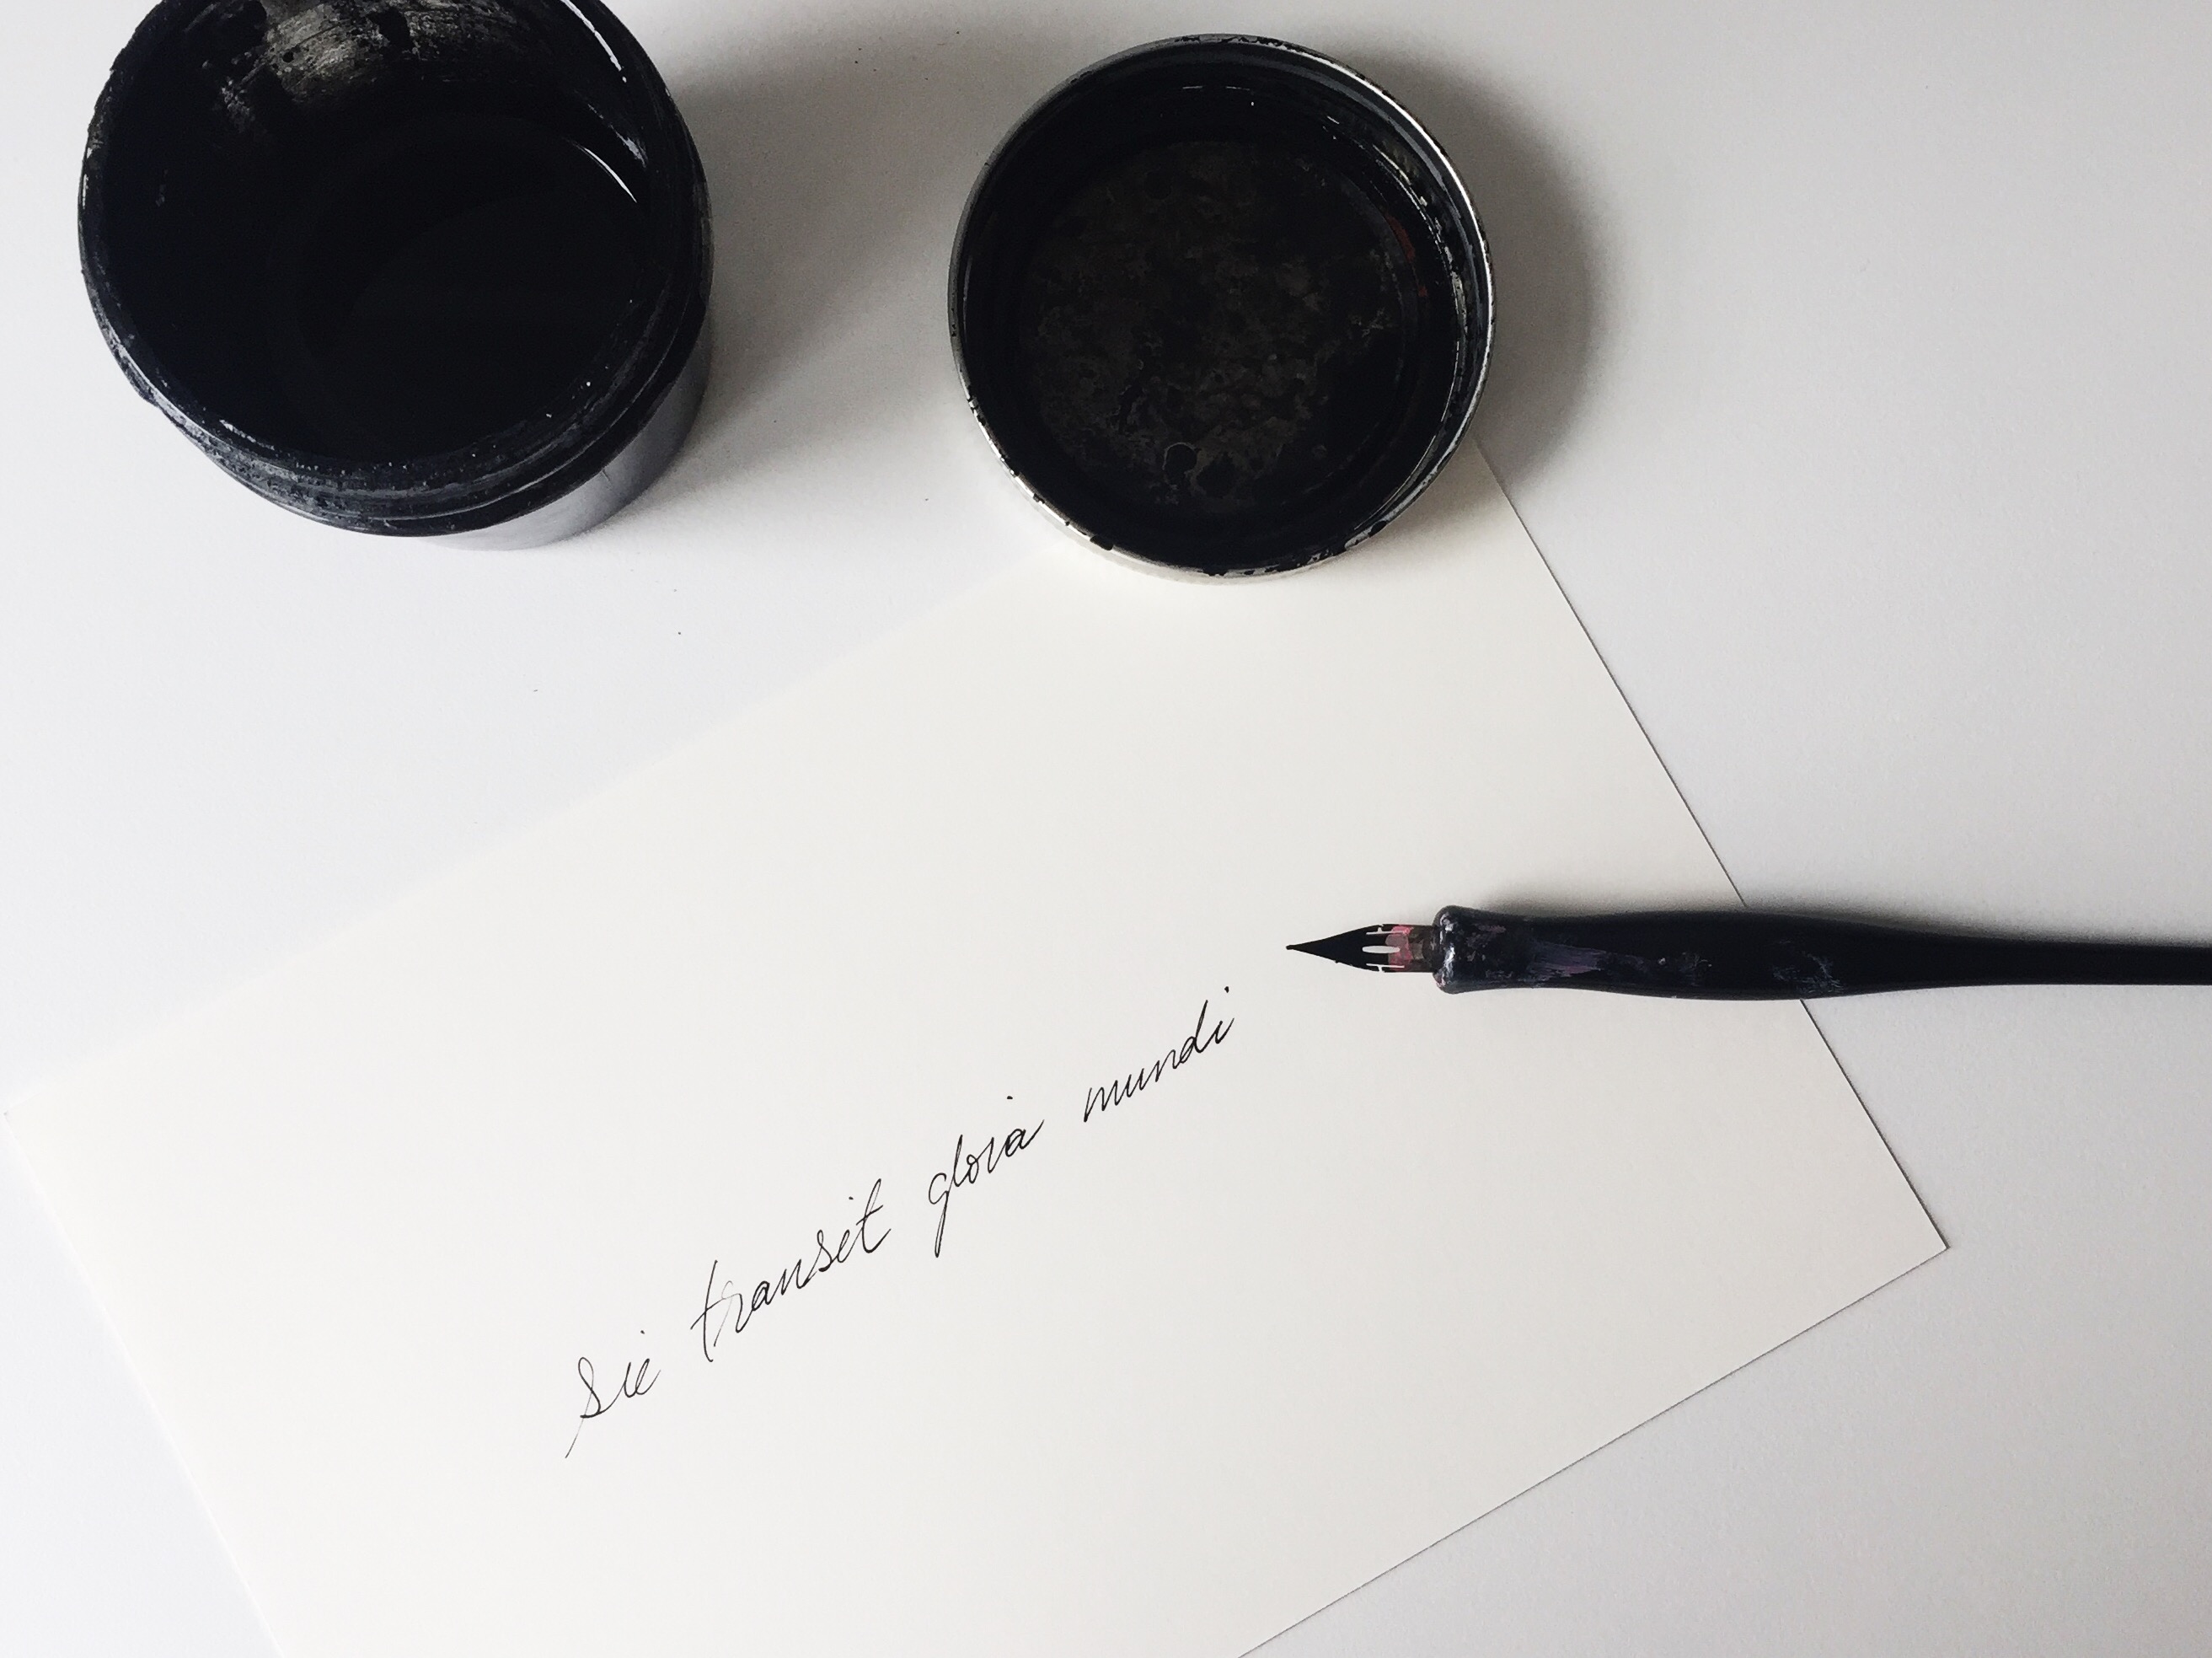 Sic transit gloria mundi